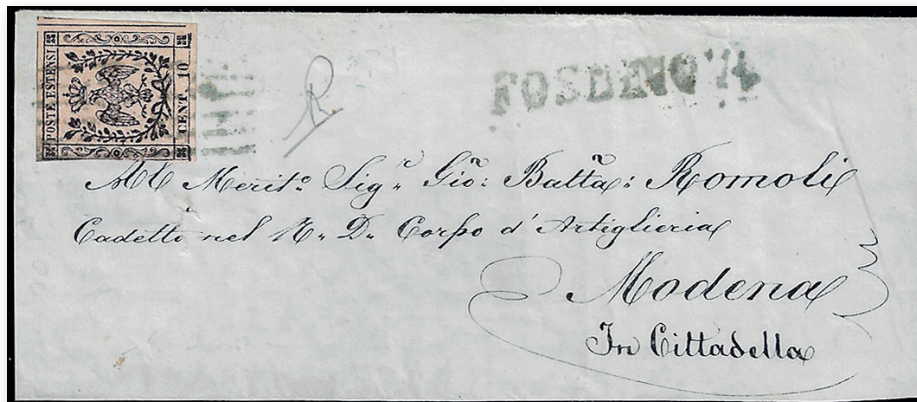 POSTE ESTENSI
CENT. 10
R
FOSDINOVO
All Merit.o Sig.r Gio: Batta: Romoli
Cadetto nel R. D. Corpo d'Artiglieria
Modena
In Cittadella